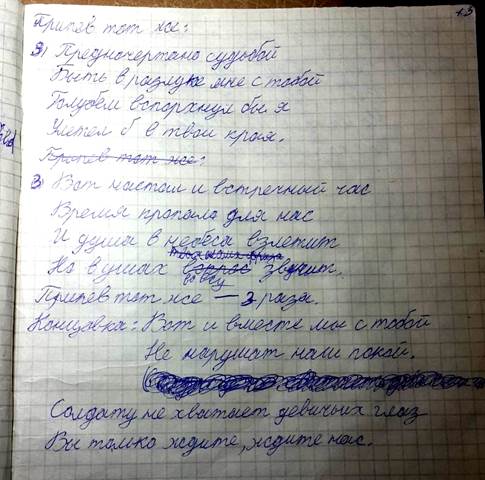 15
Припев тот же:
3) Предначертано судьбой
Быть в разлуке мне с тобой
Голубем вспорхнул бы я
Улетел б в твои края.
Припев тот же:
3) Вот настал и встречный час
Время пропало для нас
И душа в небеса взлетит
Но в ушах вопрос звучит.
Припев тот же — 2 раза.
Концовка: Вот и вместе мы с тобой
Не нарушат наш покой.
Солдату не хватает девичьих глаз
Вы только ждите, ждите нас.